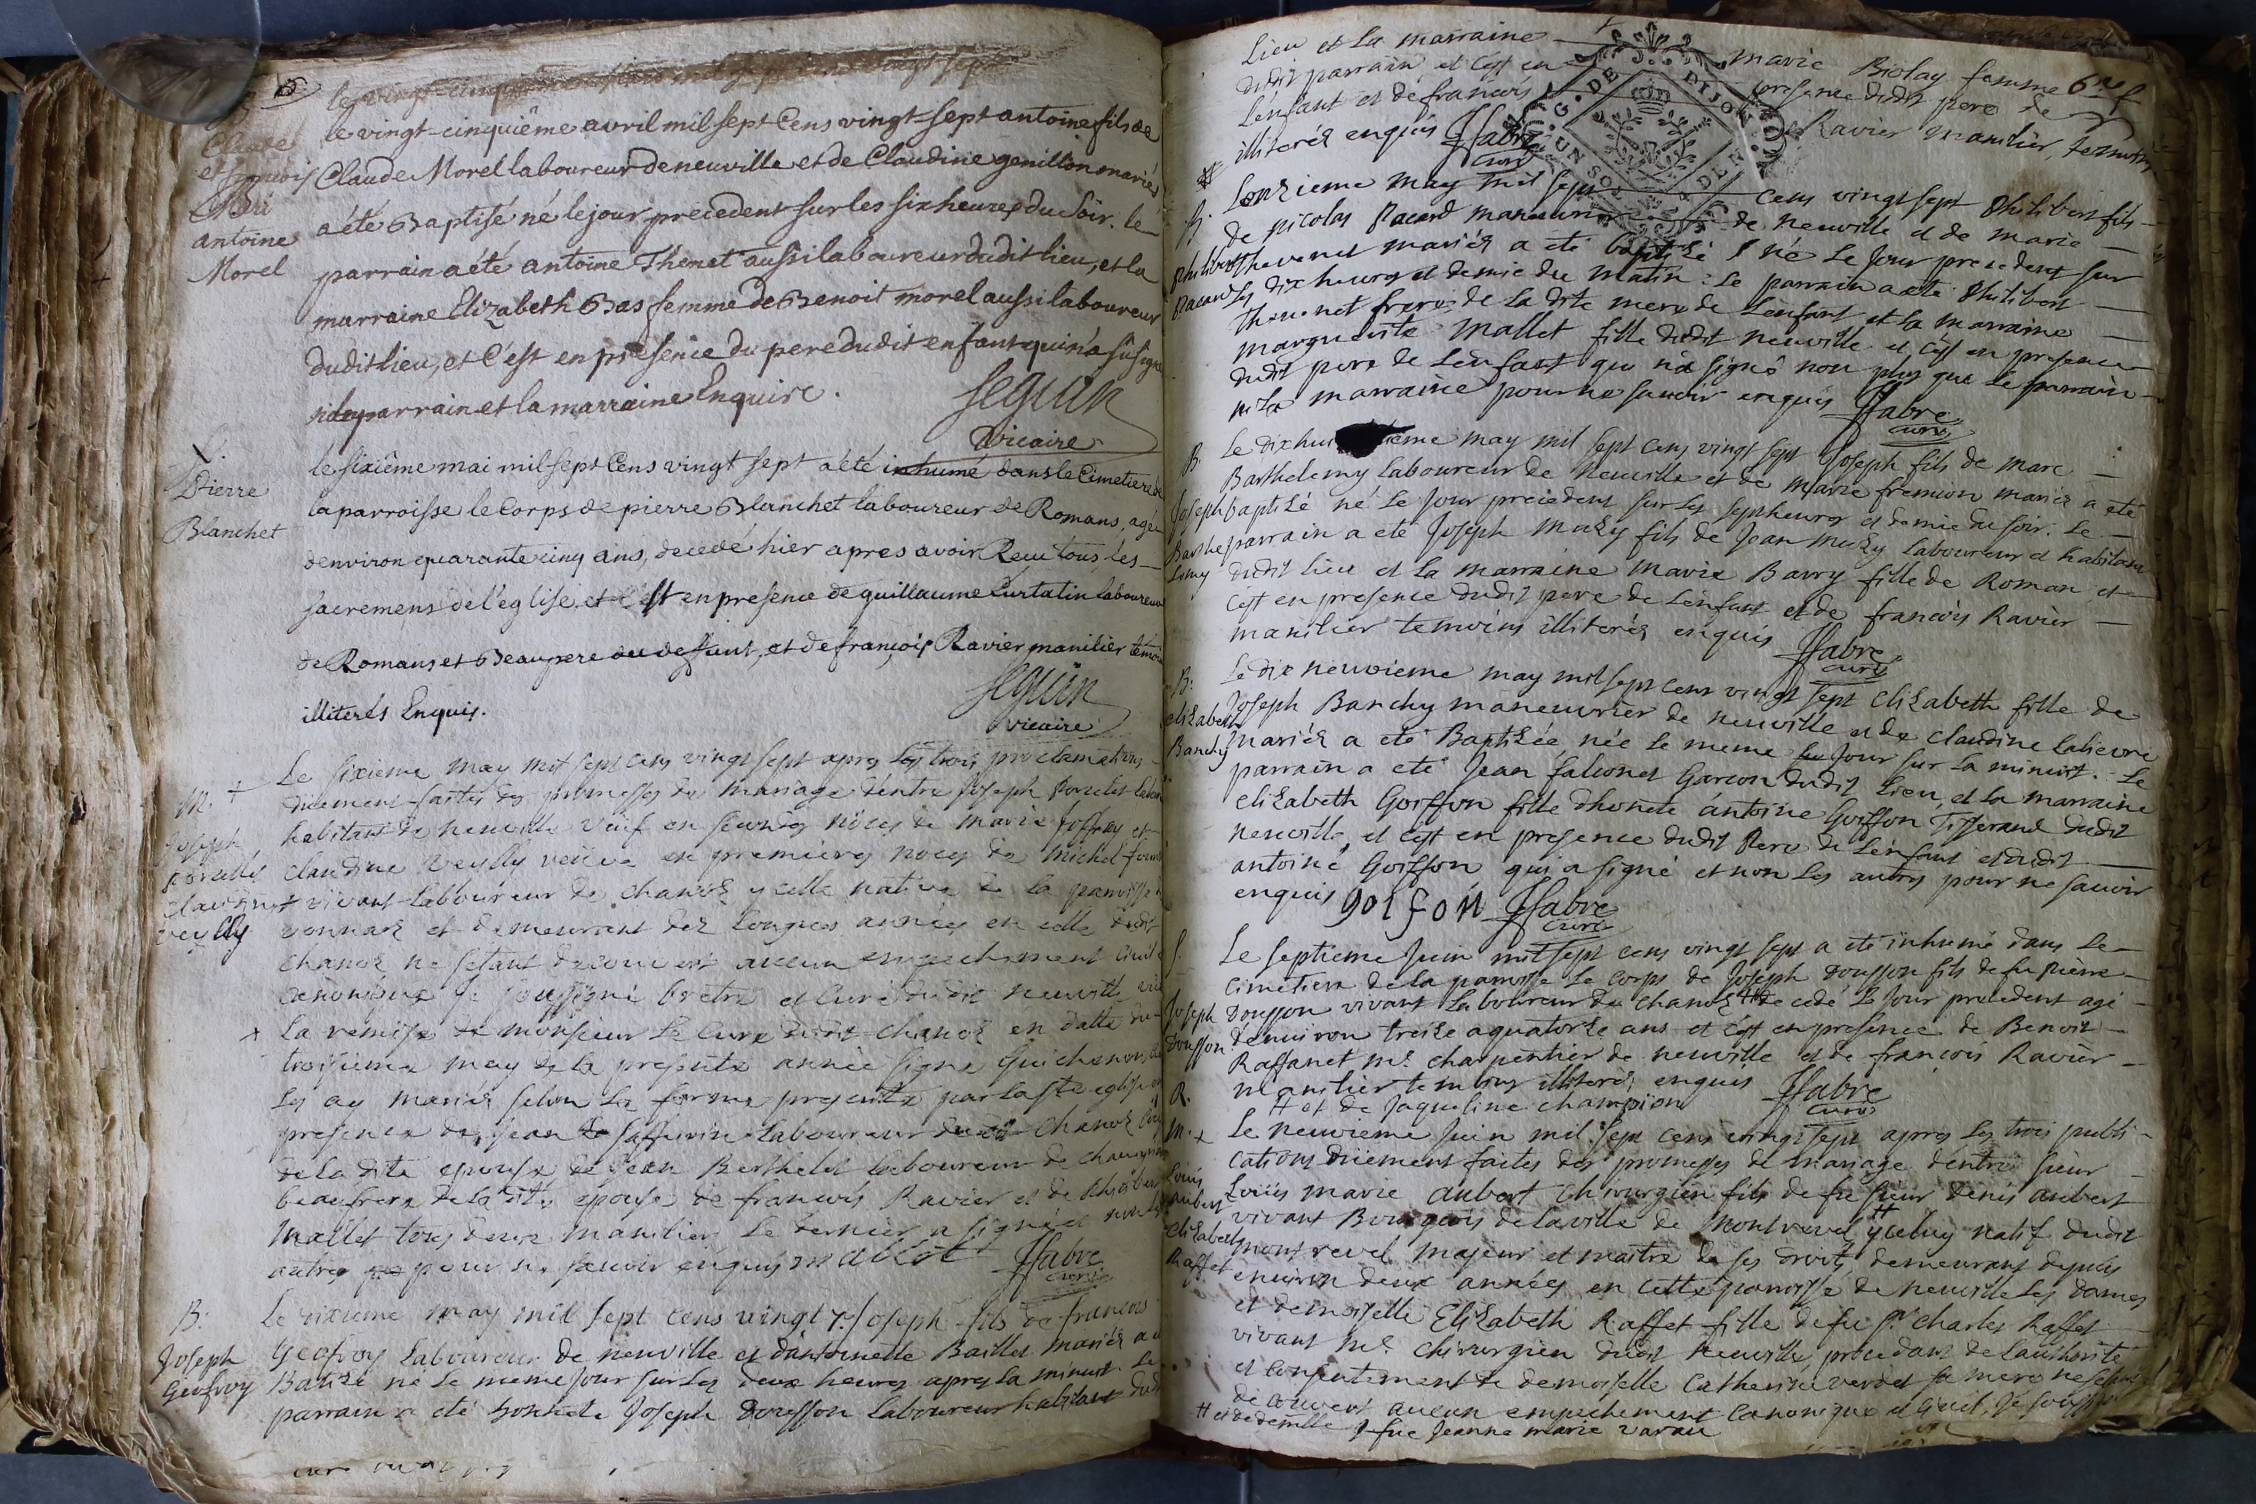 le vingt-cinquiême
le vingt-cinquiême avril mil sept Cens vingt-sept antoine fils de
Claude Morel laboureur de neuville et de Claudine genillon mariés
a été Baptisé né le jour precedent sur les six heures du Soir. le
parrain a été antoine Thenet aussi laboureur dudit lieu, et la
marraine Elizabeth Bas femme de Benoit morel aussi laboureur
dudit lieu, et C'est en présence du pere dudit enfant qui n'a sû signé
ni le parrain et la marraine Enquire.
antoine
Morel
Seguin
Vicaire
Pierre
Blanchet
le sixiême mai mil sept Cens vingt sept a été inhumé dans le Cimetiere de
la parroisse le Corps de pierre Blanchet laboureur de Romans, agé
d'environ quarante cinq ans, decedé hier apres avoir Recu tous les
sacremens de l'eglise, et c'est en presence de guillaume Curtalin laboureur
de Romans et Beaupere du deffunt, et de françois Ravier manilier temoins
illiterés Enquis.
Seguin
vicaire
M. +
Joseph
porcellet
claudine
veylly
Le sixieme may mil sept cens vingt sept apres les trois proclamations
düement faites des promesses de mariage d'entre Joseph Porcelet
habitant de neuville veuf en secondes nôces de marie Joffrey et
claudine veylly veüve en premieres noces de michel
vivant laboureur de chanoz ycelle native de la parroisse de
vonnaz et demeurant dez longues années en celle dudit
chanoz ne s'etant decouvert aucun empechement civil
canonique Je soussigné Pretre et Curé dudit neuville vû
la remise de monsieur Le Curé dudit chanoz en datte du
troisieme may de la presente année signé Guichenon,
Les ay mariés selon la forme prescrite par la ste eglise en
presence de Jean Saffurin laboureur dudit chanoz
de la dite epouse de Jean Berthelet laboureur de
beaufrere de la dite epouse de francois Ravier et de Philibert
Mallet tous deux maniliers Le dernier a signé et non les
autres pour ne savoir enquis malet JFabre
curé
B.
Joseph
Geofroy
Le sixieme may mil sept cens vingt 7. Joseph fils de francois
Geofroy Laboureur de neuville et d'antoinette Baillet mariés a été
Batisé né le meme Jour sur les deux heures apres la minuit. Le
parrain a été honnete Joseph Douffon laboureur habitant dudit
Lieu et La marraine marie Biolay femme 6me f
dudit parrain et c'est en presence dudit pere de
L'enfant et de françois Ravier manilier, temoins
illiterés enquis JFabre
curé
G. DE DIJON
UN SOL DE
B.
Philibert
Pacard
L'onzieme may mil sept cens vingt sept Philibert fils
de nicolas Pacard maneuvrier de neuville et de marie
Thevenet mariés a été baptisé né Le Jour precedent sur
les dix heures et demie du matin: Le parrain a été Philibert
thevenet frere de la dite mere de L'enfant et la marraine
margueritte Mallet fille dudit neuville et c'est en presence
dudit pere de L'enfant qui n'a signé non plus que Le parrain
ni La marraine pour ne savoir enquis JFabre
curé
B.
Joseph
Barthe
Lemy
Le dixhuitieme may mil sept cens vingt sept Joseph fils de marc
Barthelemy laboureur de Neuville et de marie fremion mariés a été
baptisé né Le Jour precedent sur les sept heures et demie du soir. Le
parrain a été Joseph Muzy fils de Jean Muzy Laboureur et habitant
dudit lieu et la marraine marie Bavry fille de Roman et
C'est en presence dudit pere de L'enfant et de françois Ravier
manilier temoins illiterés enquis JFabre
curé
B.
elizabeth
Banchy
Le dix neuvieme may mil sept cens vingt sept Elizabeth fille de
Joseph Banchy maneuvrier de neuville et de claudine Lalievre
mariés a été Baptizée née le meme Jour sur la minuit. Le
parrain a été Jean falconet Garcon dudit Lieu, et la marraine
elizabeth Goiffon fille d'honete antoine Goiffon Tisserand dudit
neuville, et c'est en presence dudit Pere de L'enfant et dudit
antoine Goiffon qui a signé et non Les autres pour ne savoir
enquis goifon JFabre
curé
S.
Joseph
Douffon
Le septieme Juin mil sept cens vingt sept a été inhumé dans Le
cimetiere de la parroisse Le corps de Joseph Douffon fils de fu Pierre
Douffon vivant Laboureur de Chanoz # decedé Le Jour precedent agé
d'environ treize a quatorze ans et c'est en presence de Benoit
Raffanet me. charpentier de neuville et de francois Ravier
manilier temoins illiterés enquis JFabre
curé
# et de Jaqueline champion
R.
M. x
Loüis
aubert
Elizabeth
Raffet
Le neuvieme Juin mil sept cens vingt sept apres Les trois publi-
cations düement faites des promesses de mariage d'entre sieur
Loüis marie aubert chirurgien fils de fu sieur denis aubert
vivant Bourgeois de la ville de montrevel # yceluy natif dudit
montrevel majeur et maitre de ses droits demeurant depuis
environ deux années en cette parroisse de neuville les dames
et demoiselle Elizabeth Raffet fille de fu Sr. Charles Raffet
vivant me. chirurgien dudit neuville, procedant de l'authorité
et consentement de demoiselle Catherine verdet sa mere ne s'etant
decouvert aucun empechement canonique et Civil, Je soussigné
# et de demlle fue Jeanne marie varau